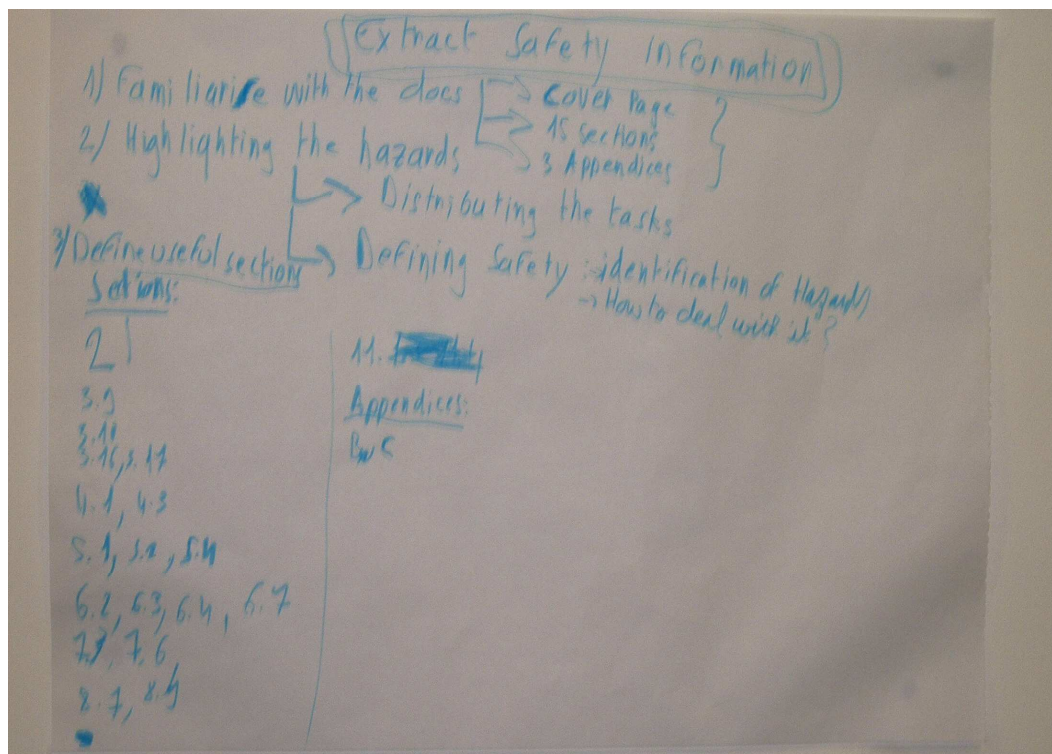 Extract Safety information
1) Familiarise with the docs
Cover Page
15 sections
3 Appendices
2) Highlighting the hazards
Distributing the tasks
Defining Safety : identification of Hazards
→ How to deal with it?
3) Define useful sections
Sections:
2
3.9
3.10
3.16, 3.17
4.1, 4.3
5.1, 5.2, 5.4
6.2, 6.3, 6.4, 6.7
7.6
8.7
11.
Appendices: